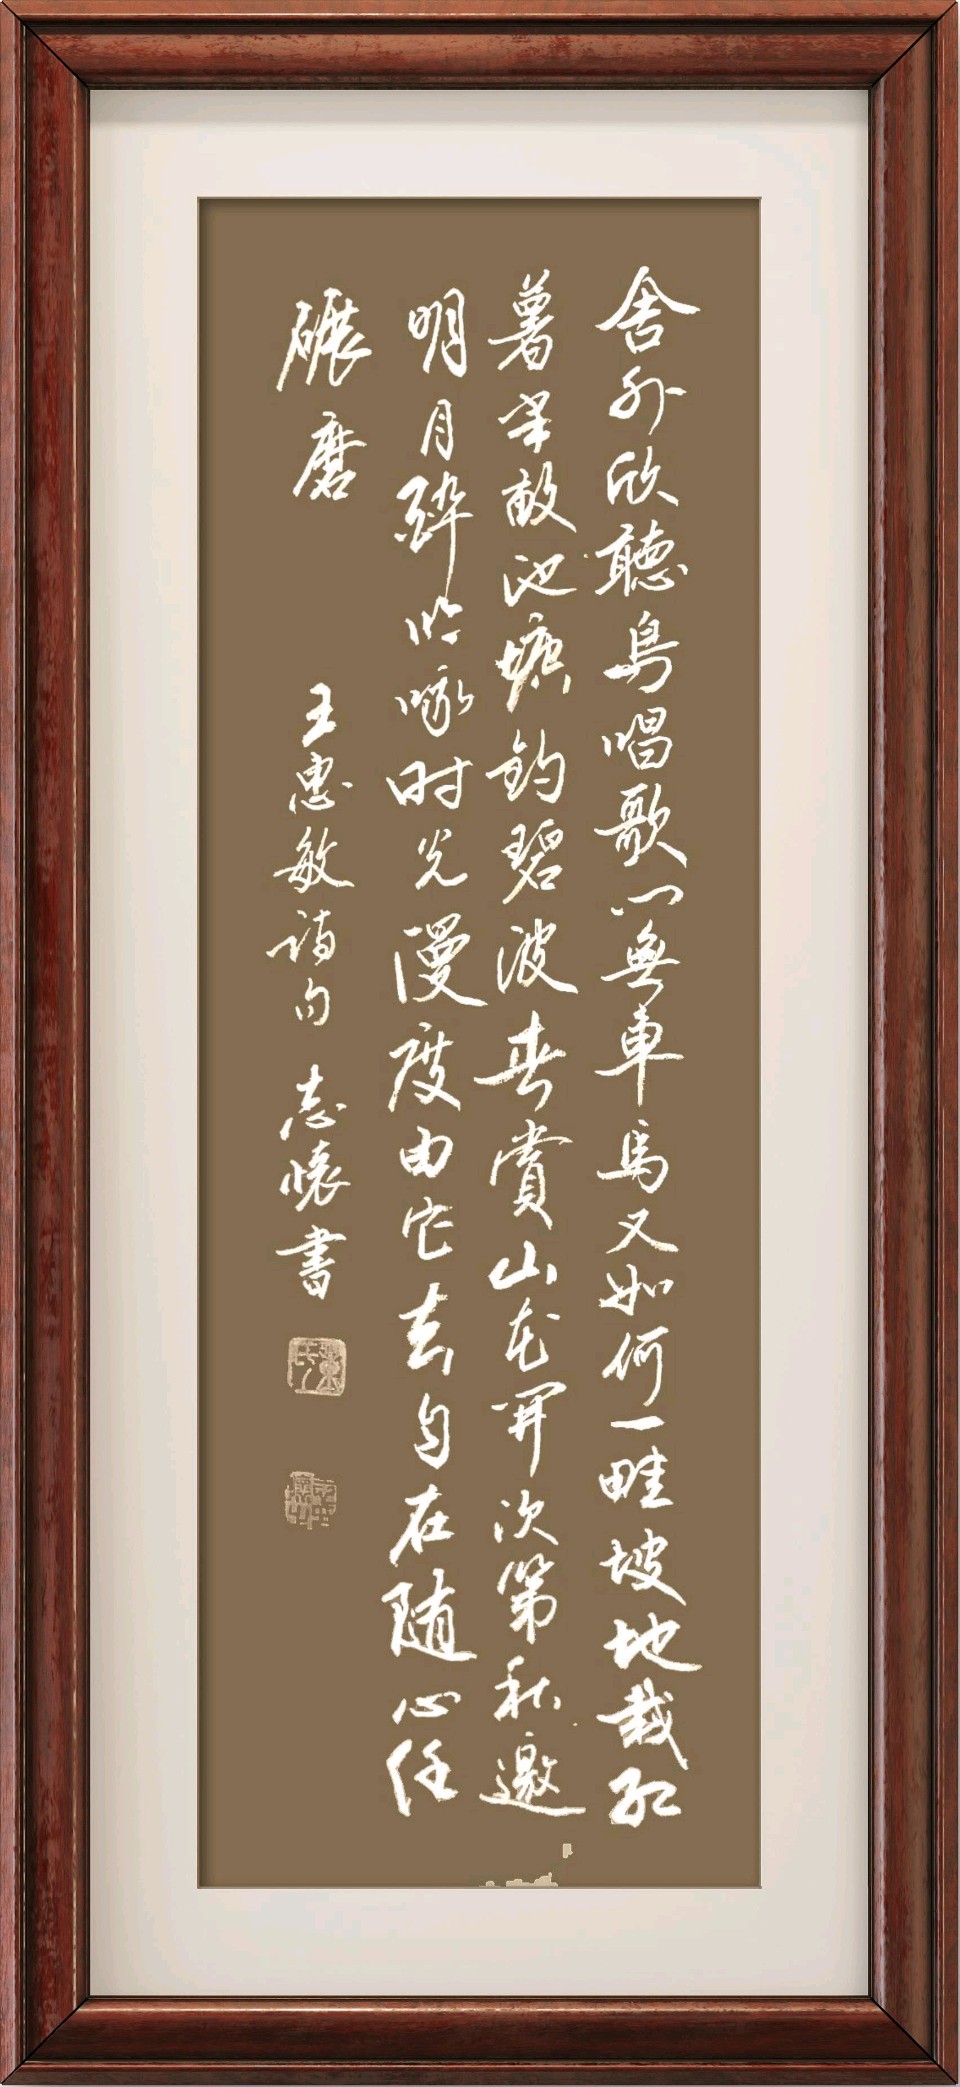 舍外欣聽鳥唱歌门無車馬又如何一畦坡地栽红
薯半畝池塘钓碧波春賞山花開次第秋邀
明月醉吟哦时光漫度由它去自在随心任
碾磨 王惠敏诗句 志懷書